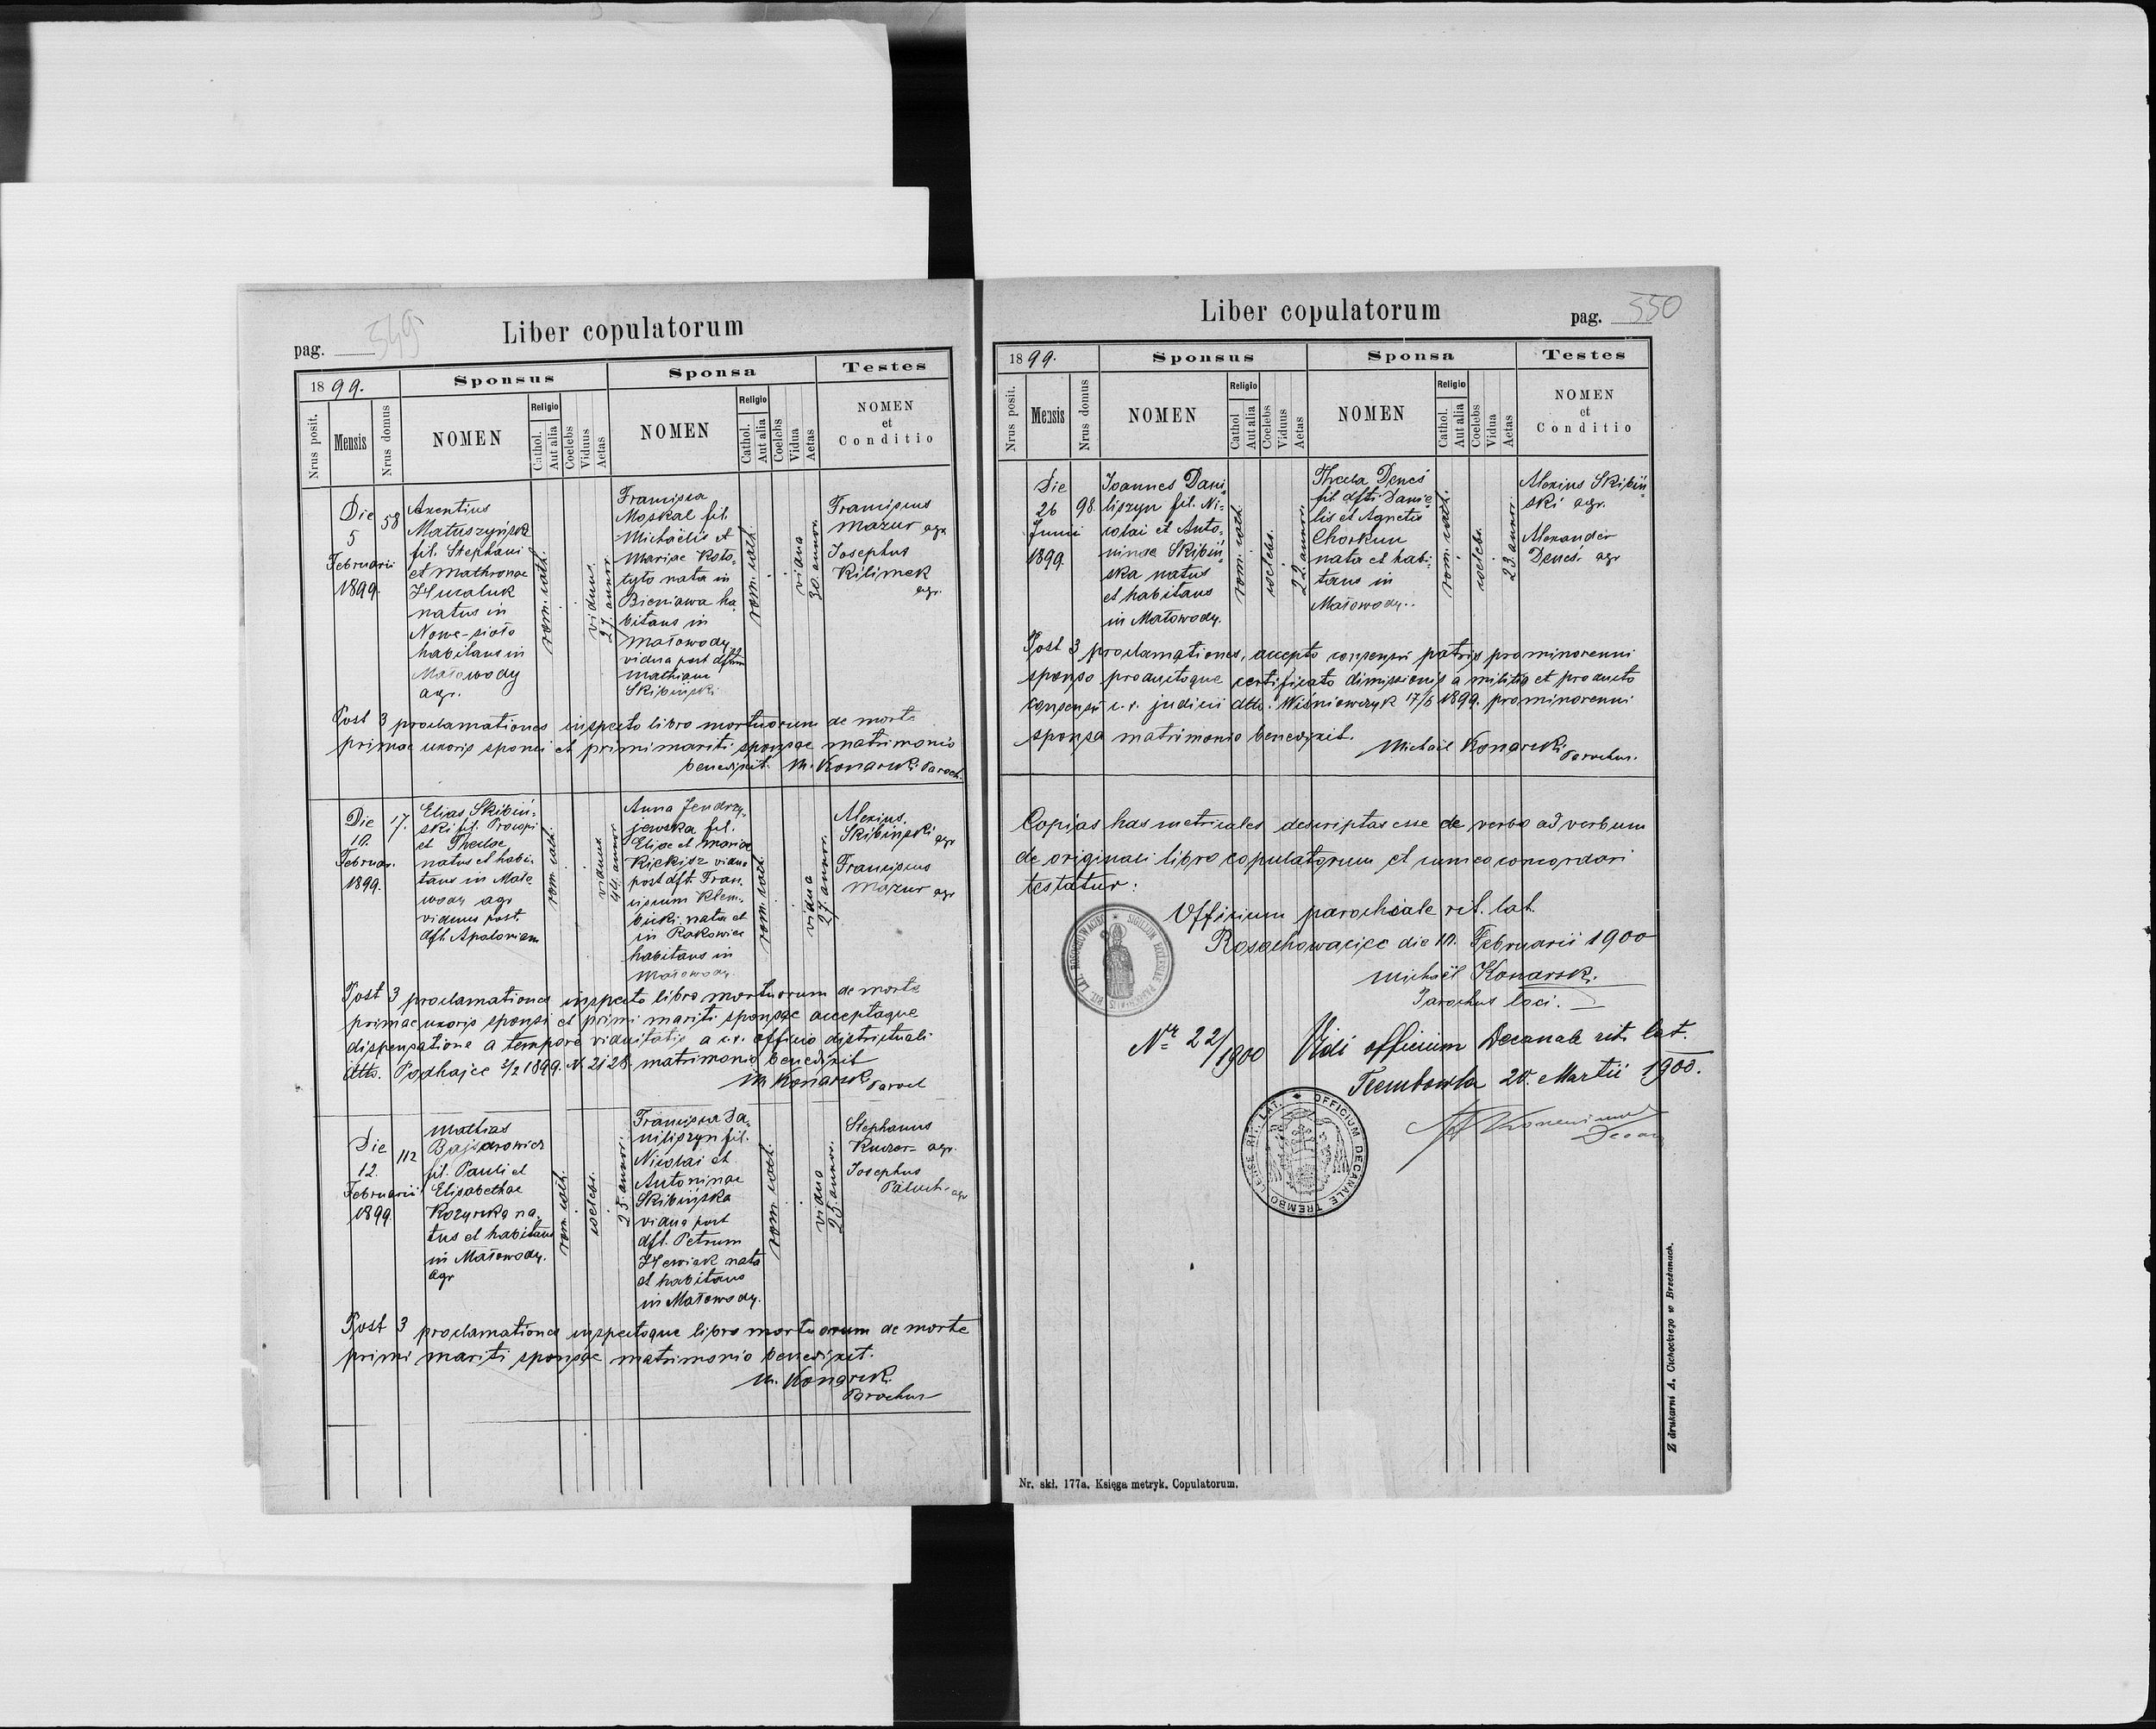 pag. 549
Liber copulatorum
1899.
Sponsus
Sponsa
Testes
Nrus posit.
Mensis
Nrus domus
NOMEN
Religio
Cathol.
Aut alia
Coelebs
Viduus
Aetas
NOMEN
Religio
Cathol.
Aut alia
Coelebs
Vidua
Aetas
NOMEN
et
Conditio
Die
5
Februarii
1899.
58
Axentius
Matuszyński
fil. Stephani
et Mathronae
Huzaluk
natus in
Nowe-sioło
habitans in
Małowody
agr.
rom. cath.
viduus
27. annor.
Francisca
Moskal fil.
Michaelis et
Mariae Koto-
tyło nata in
Bieniawa ha-
bitans in
Małowody
vidua post dftum
Mathiam
Skibiński
rom. cath.
vidua
30. annor.
Franciscus
Mazur agr.
Josephus
Kilimek
agr.
Post 3 proclamationes inspecto libro mortuorum de morte
primae uxoris sponsi et primi mariti sponsae matrimonio
benedixit. M. Konarski Paroch.
Die
10.
Februar.
1899.
17.
Elias Skibiń-
ski fil. Procopi
et Theclae
natus et habi-
tans in Mało
wody agr
viduus post.
dft. Apoloniam
rom. cath.
viduus
44. annor
Anna Jendrzy-
jewska fil.
Eliae et Mariae
Kiekisz vidua
post dft. Fran-
ciscum Klem-
bicki. nata et
in Rakowiec
habitans in
Małowody.
rom. cath.
vidua
27. annor.
Alexius.
Skibiński agr
Franciscus
Mazur agr
Post 3 proclamationes inspecto libro mortuorum de morte
primae uxoris sponsi et primi mariti sponsae acceptaque
dispensatione a tempore viduitatis a c. r. officio districtuali
dtto. Podhajce 2/2 1899. N. 2128. matrimonio benedixit
M. Konarski Paroch
Die
12.
Februarii
1899.
112
Mathias
Bajdarowicz
fil. Pauli et
Elisabethae
Kozyrska na-
tus et habitans
in Małowody.
agr
rom. cath.
coelebs.
25. annor.
Francisca Da-
niliszyn fil.
Nicolai et
Antoninae
Skibińska
vidua post
dft. Petrum
Hewiak nata
et habitans
in Małowody.
rom. cath.
vidua
25. annor.
Stephanus
Kuzar- agr.
Josephus
Paluch- agr
Post 3 proclamationes inspectoque libro mortuorum de morte
primi mariti sponsae matrimonio benedixit.
M. Konarski.
Parochus
Liber copulatorum
pag. 550
1899.
Sponsus
Sponsa
Testes
Nrus posit.
Mensis
Nrus domus
NOMEN
Religio
Cathol
Aut alia
Coelebs
Viduus
Aetas
NOMEN
Religio
Cathol.
Aut alia
Coelebs
Vidua
Aetas
NOMEN
et
Conditio
Die
26
Junii
1899.
98.
Joannes Dani-
liszyn fil. Ni-
colai et Anto-
ninae Skibiń-
ska natus
et habitans
in Małowody.
rom. cath.
coelebs.
22. annor.
Thecla Deneś
fil. dfti Danie-
lis et Agnetis
Chorkun
nata et habi-
tans in
Małowody.
rom. cath.
coelebs.
23. annor.
Alexius Skibiń-
ski agr.
Alexander
Deneś. agr
Post 3 proclamationes, accepto consensu patris pro minorenni
sponso productoque certificato dimissionis a militia et producto
consensu c. r. judicii dtto. Wiśniowczyk 17/6 1899. pro minorenni
sponsa matrimonio benedixit.
Michaël Konarski. Parochus.
Copias has metricales descriptas esse de verbo ad verbum
de originali libro copulatorum et cum eo concordari
testatur:
Officium parochiale rit. lat.
Rosochowaciec die 10. Februarii 1900
Michaël Konarski.
Parochus loci.
SIGILLUM ECCLESIAE PAROCHIALIS RIT. LAT. ROSOCHOWACIEC
Nr. 22/1900
Vidi officium Decanale rit. lat.
Trembowla 20. Martii 1900.
Decan
OFFICIUM DECANALE TREMBOVLENSE RIT. LAT.
Z drukarni A. Cichockiego w Brzeżanach.
Nr. skł. 177a. Księga metryk. Copulatorum.